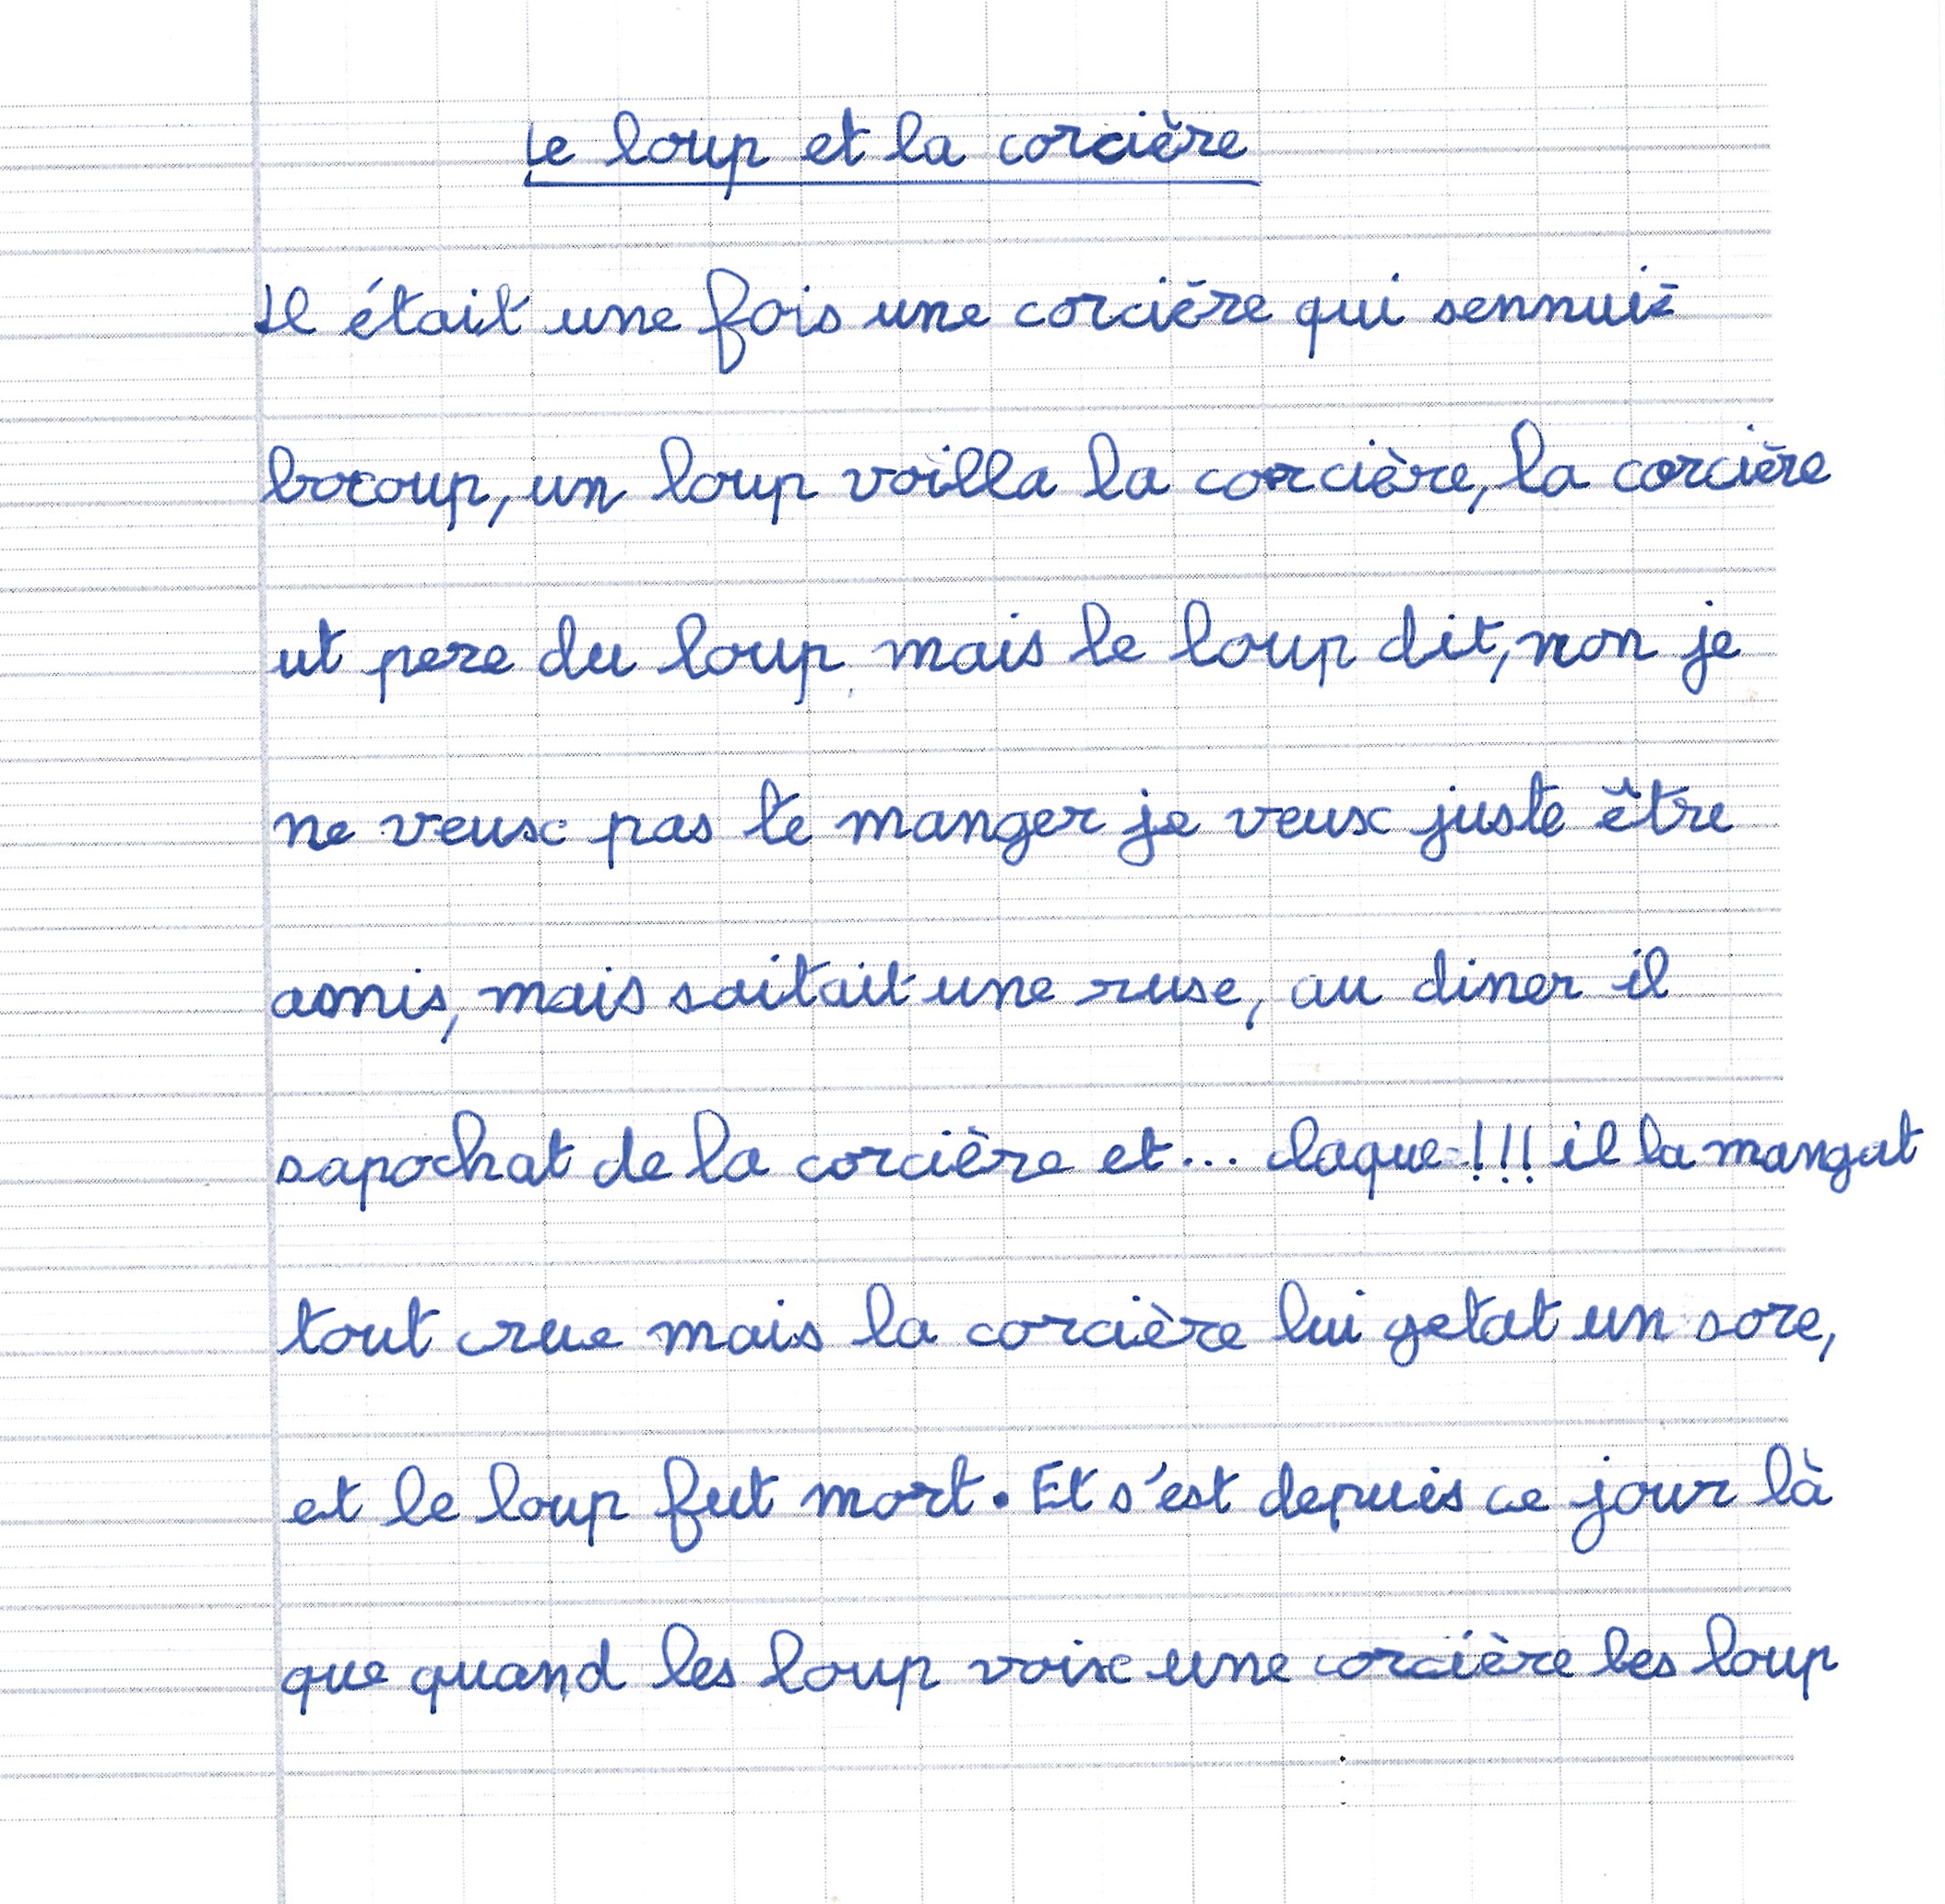 Le loup et la corcière
Il était une fois une corcière qui sennuiè
bocoup, un loup voilla la corcière, la corcière
ut pere du loup mais le loup dit, non je
ne veux pas te manger je veux juste être
amis, mais saitait une ruse, au diner il
sapochat de la corcière et... claque !!! il la mangat
tout crue mais la corcière lui getat un sore,
et le loup fut mort. Et s'est depuis ce jour là
que quand les loup voix une corcière les loup